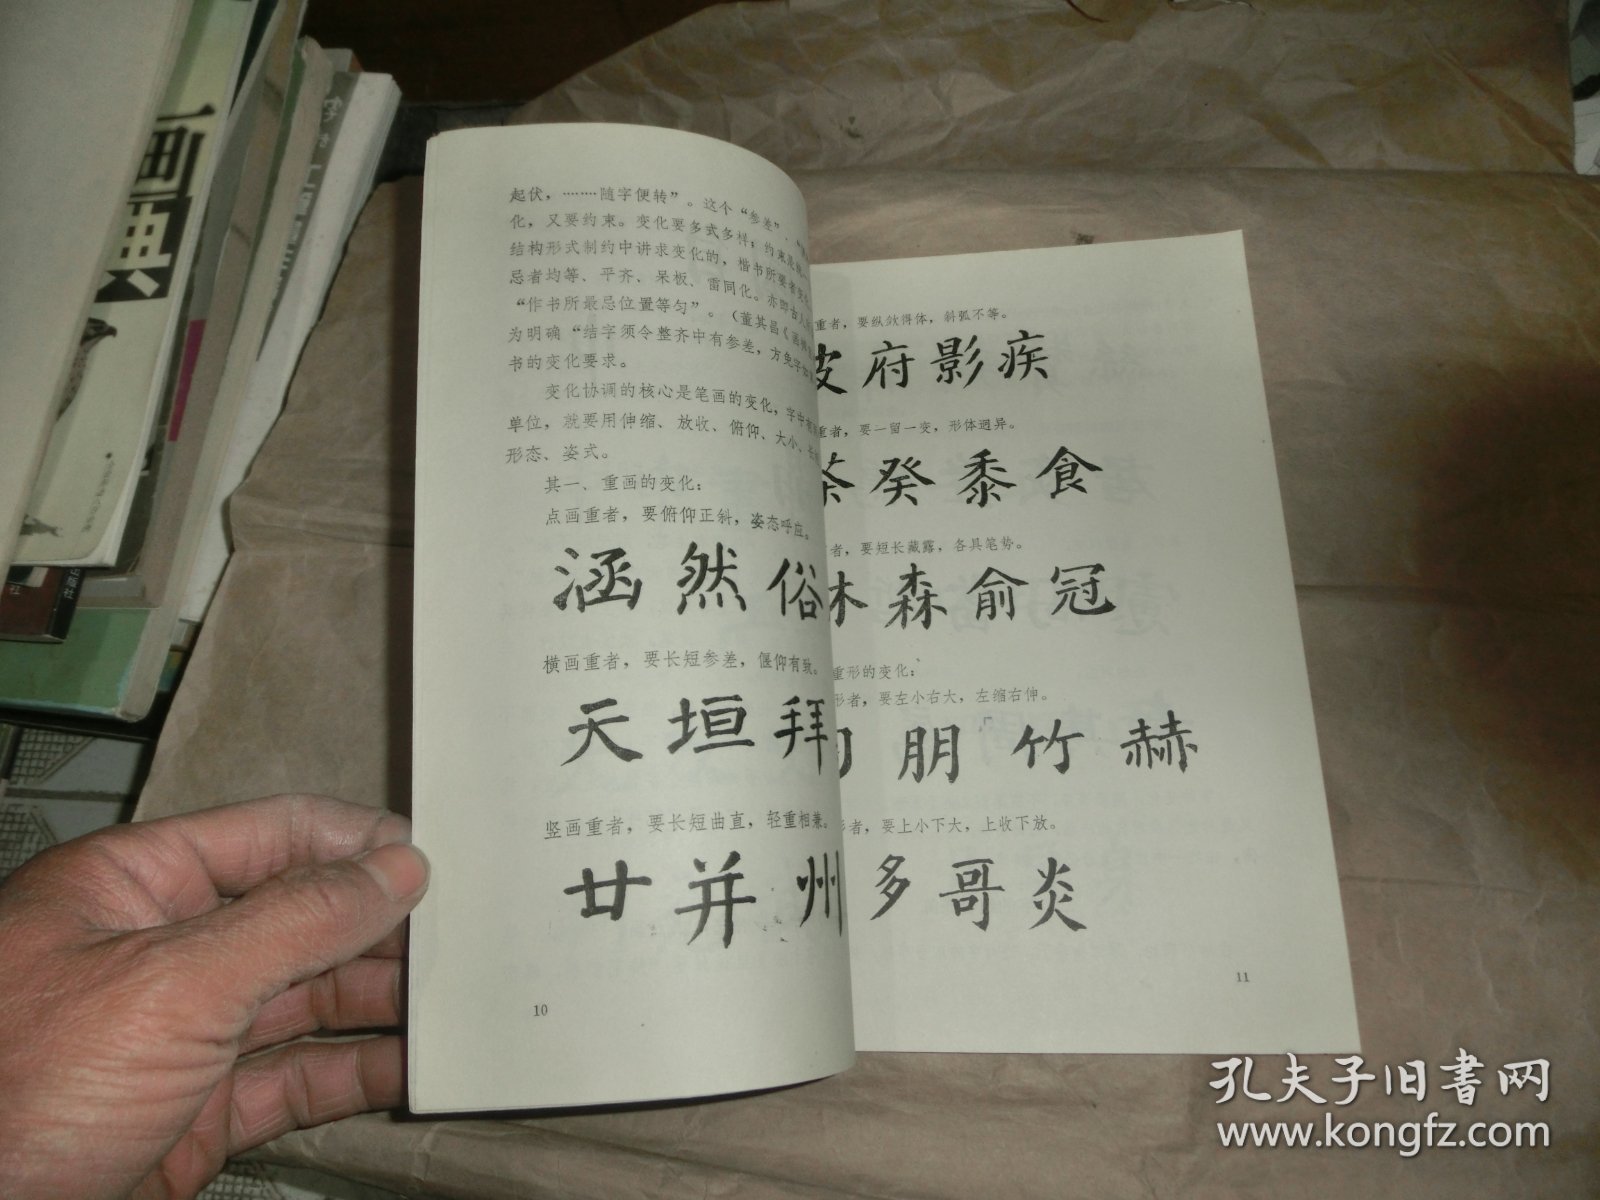 起伏，………随字便转”。这个“参差”、
化，又要约束。变化要多式多样；约束是
结构形式制约中讲求变化的，楷书所要者变
忌者均等、平齐、呆板、雷同化。亦即古人
“作书所最忌位置等匀”。（董其昌《画禅
为明确“结字须令整齐中有参差，方免字如
书的变化要求。
变化协调的核心是笔画的变化，字中
单位，就要用伸缩、放收、俯仰、大小、长
形态、姿式。
其一、重画的变化：
点画重者，要俯仰正斜，姿态呼应。
涵然俗
横画重者，要长短参差，偃仰有致。
天垣拜
竖画重者，要长短曲直，轻重相兼。
廿并州
10
重者，要纵敛得体，斜弧不等。
皮府影疾
重者，要一留一变，形体迥异。
茶癸黍食
者，要短长藏露，各具笔势。
林森俞冠
重形的变化：
形者，要左小右大，左缩右伸。
朋竹赫
形者，要上小下大，上收下放。
多哥炎
11
画
典
出版社
社
孔夫子旧书网
www.kongfz.com